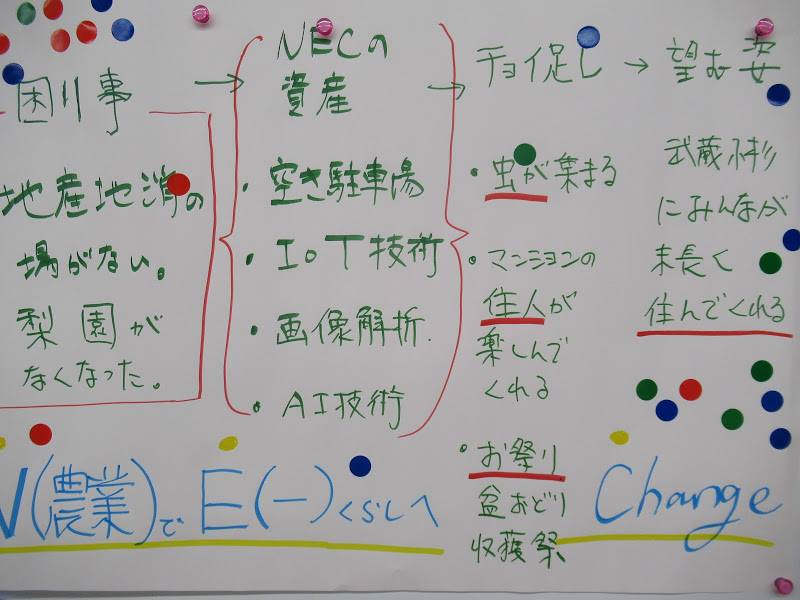 困り事
地産地消の
場がない。
梨園が
なくなった。
→
NECの
資産
・空き駐車場
・IoT技術
・画像解析.
・AI技術
→
チョイ促し
・虫が集まる
・マンションの
住人が
楽しんで
くれる
・お祭り
盆おどり
収獲祭
→
望む姿
武蔵小杉
にみんなが
末長く
住んでくれる
N(農業)でE(ー)くらしへ
Change